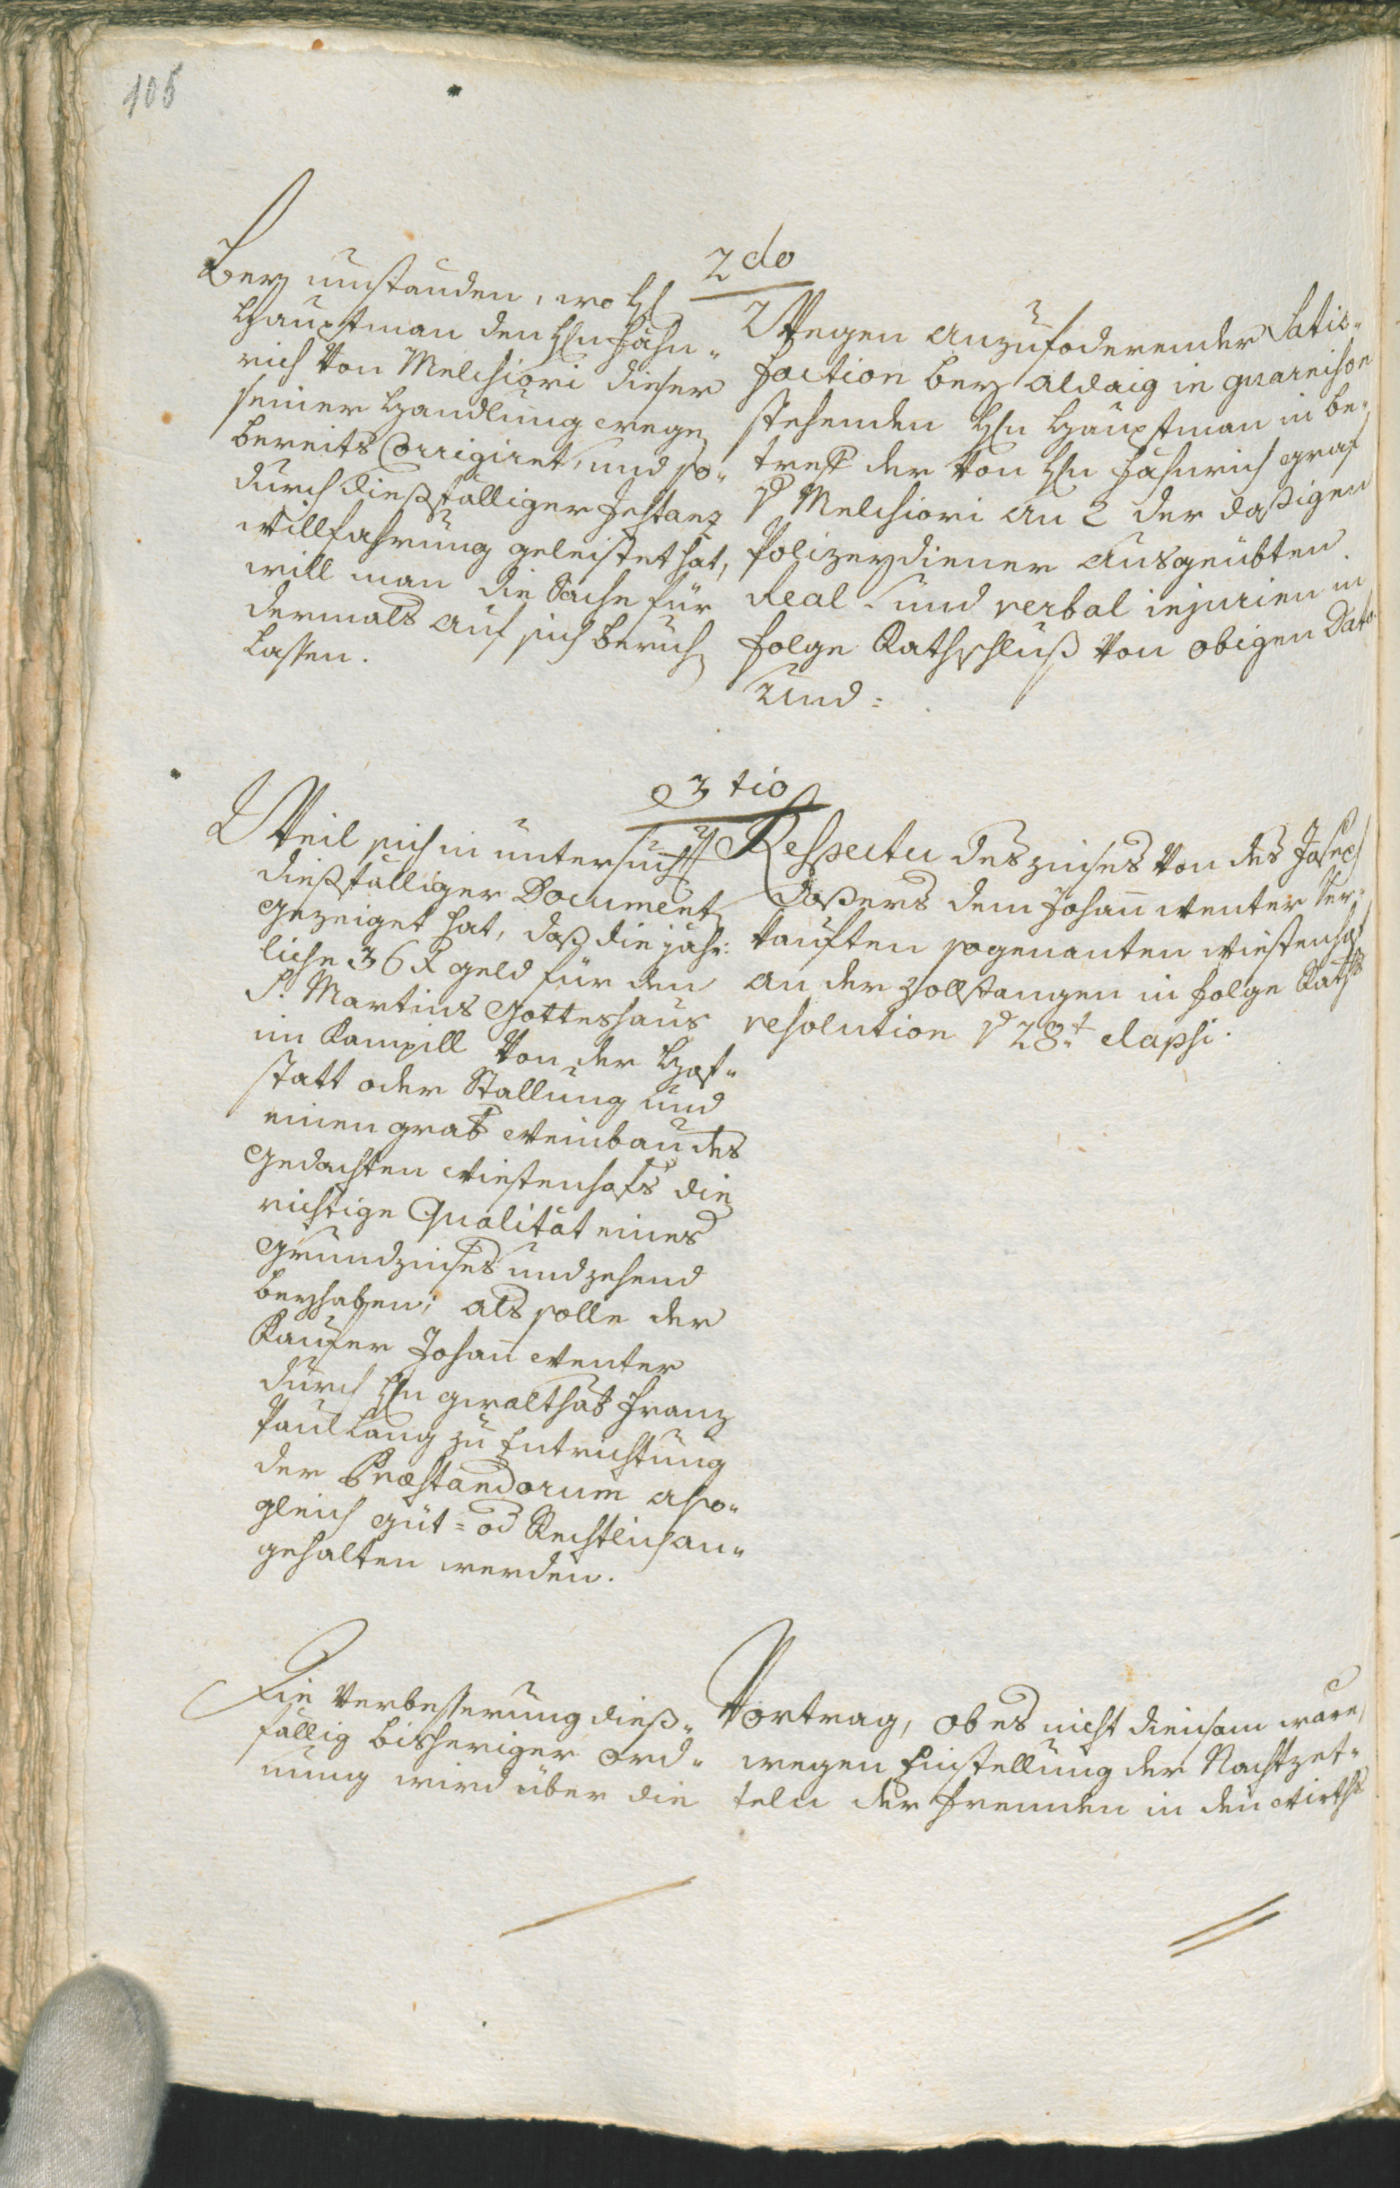 105
2do
Bey umstanden, wo H:
Hauptman den H:n Fähn-
rich von Melchiori dieser
seiner Handlung wege
bereits Corrigiret, und so-
durch dießfälliger Jnstanz
willfahrung geleistet hat,
will man die Sache für
dermals auf sich beruhe
lassen.
Wegen anzufoderender Satis-
faction bey aldaig in guarnison
stehenden H:n Hauptman in be-
treff der von H:n Fähnrich graf
v Melchiori an 2 der dasigen
Polizeydiener ausgeübten
Real- und verbal injurien in
folge Rathschluß von obigen Dato
und:
3tio
Weil sich in untersuch
dießfälliger Document
gezeiget hat, daß die jähr:
liche 36 x geld für den
S. Martins Gotteshaus
im Kampill von der Hof-
statt oder Stallung und
einen grab Weinbau des
gedachten Wiestenhofs die
richtige Qualität eines
Grundzinses und zehend
beyhaben; als solle der
Kaufer Johan Wenter
durch H:n gwalthab Franz
Paul Lang zu Entrichtung
der Præstandorum also-
gleich güt- od Rechtlich an-
gehalten werden.
Respectu des zinses von des Joseph
dem Johan Wenter ver-
kauften sogenanten Wiestenhof
an der Zollstangen in folge Raths
resolution v 28.t elapsi.
Die Verbesserung dieß-
fällig bisheriger Ord-
nung wird über die
Vortrag, ob es nicht diensam ware,
wegen Einstellung der Nachtzet-
teln der Fremden in den Wirths